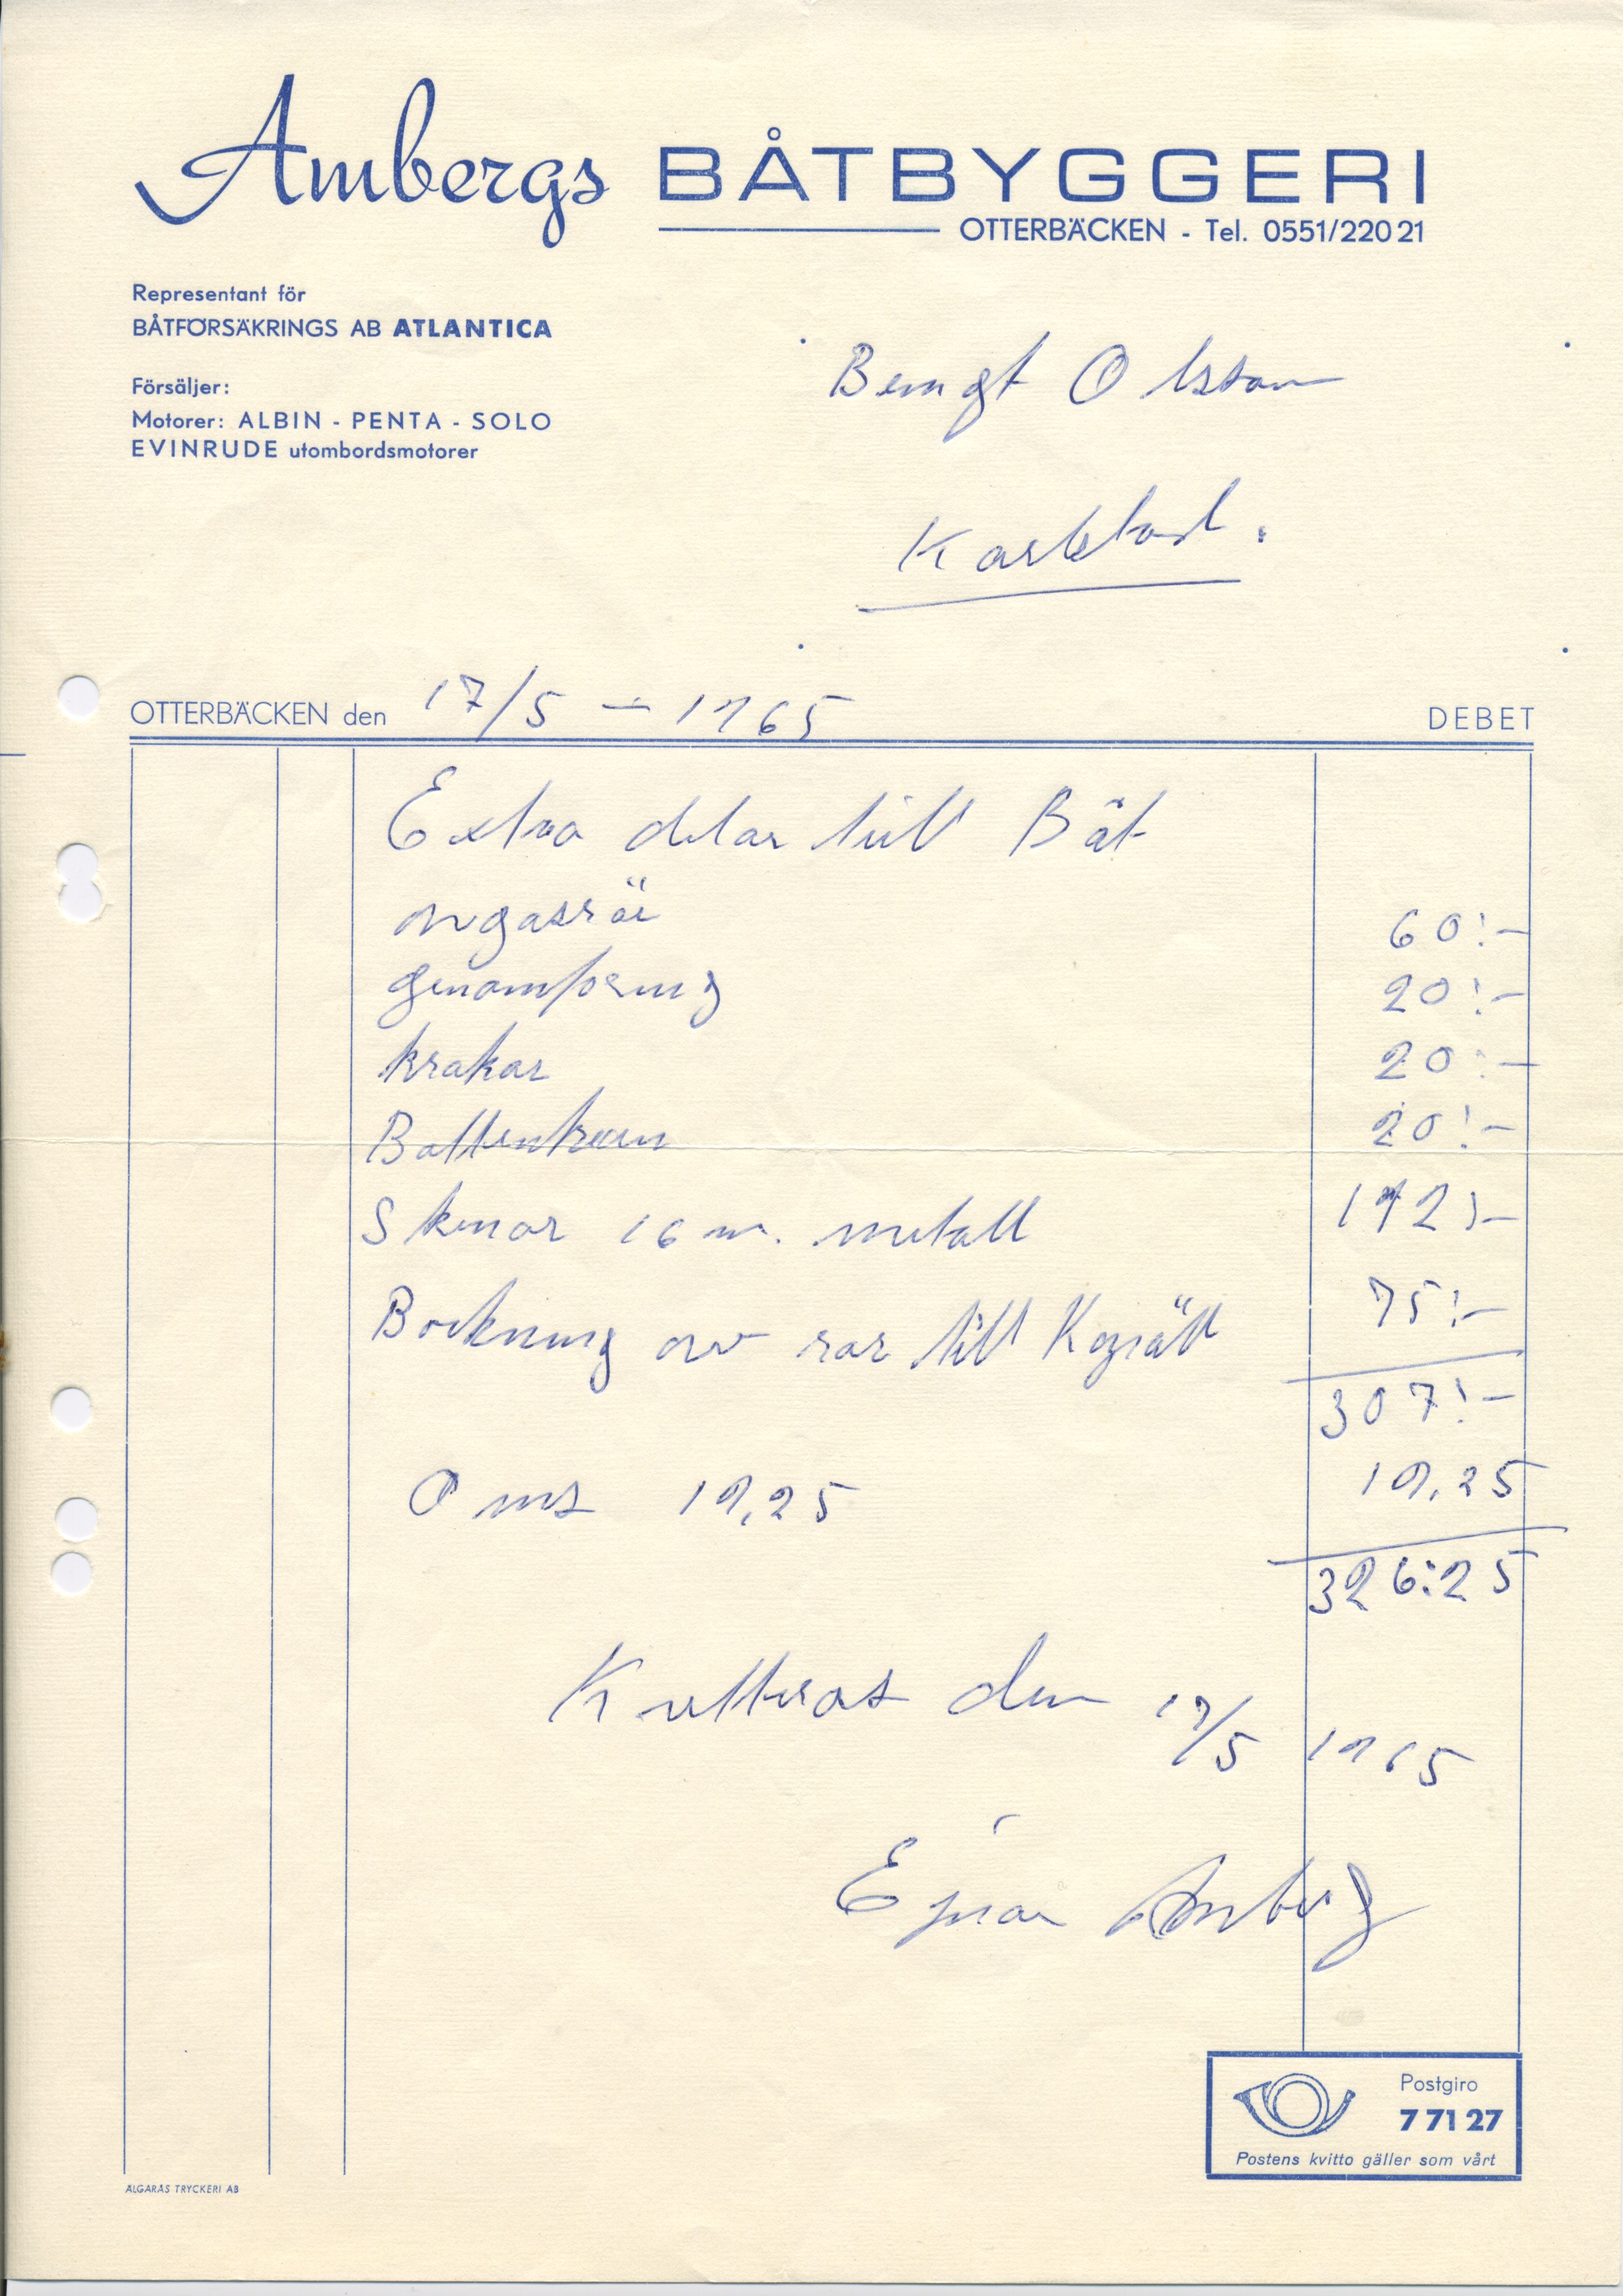 Ambergs BÅTBYGGERI
OTTERBÄCKEN - Tel. 0551/220 21
Representant för
BÅTFÖRSÄKRINGS AB ATLANTICA
Försäljer:
Motorer: ALBIN - PENTA - SOLO
EVINRUDE utombordsmotorer
Bengt Olsson
Karlstad.
OTTERBÄCKEN den 17/5 - 1965
DEBET
Extra delar till Båt
avgasrör 60:-
genomföring 20:-
krokar 20:-
Bottenkran 20:-
Skenor 16 m. metall 112:-
Bockning av rör till Kapäll 75:-
307:-
Oms 19,25 19,25
326:25
Kvitteras den 17/5 1965
Ejnar Amberg
Postgiro
7 71 27
Postens kvitto gäller som vårt
ÄLGARÅS TRYCKERI AB